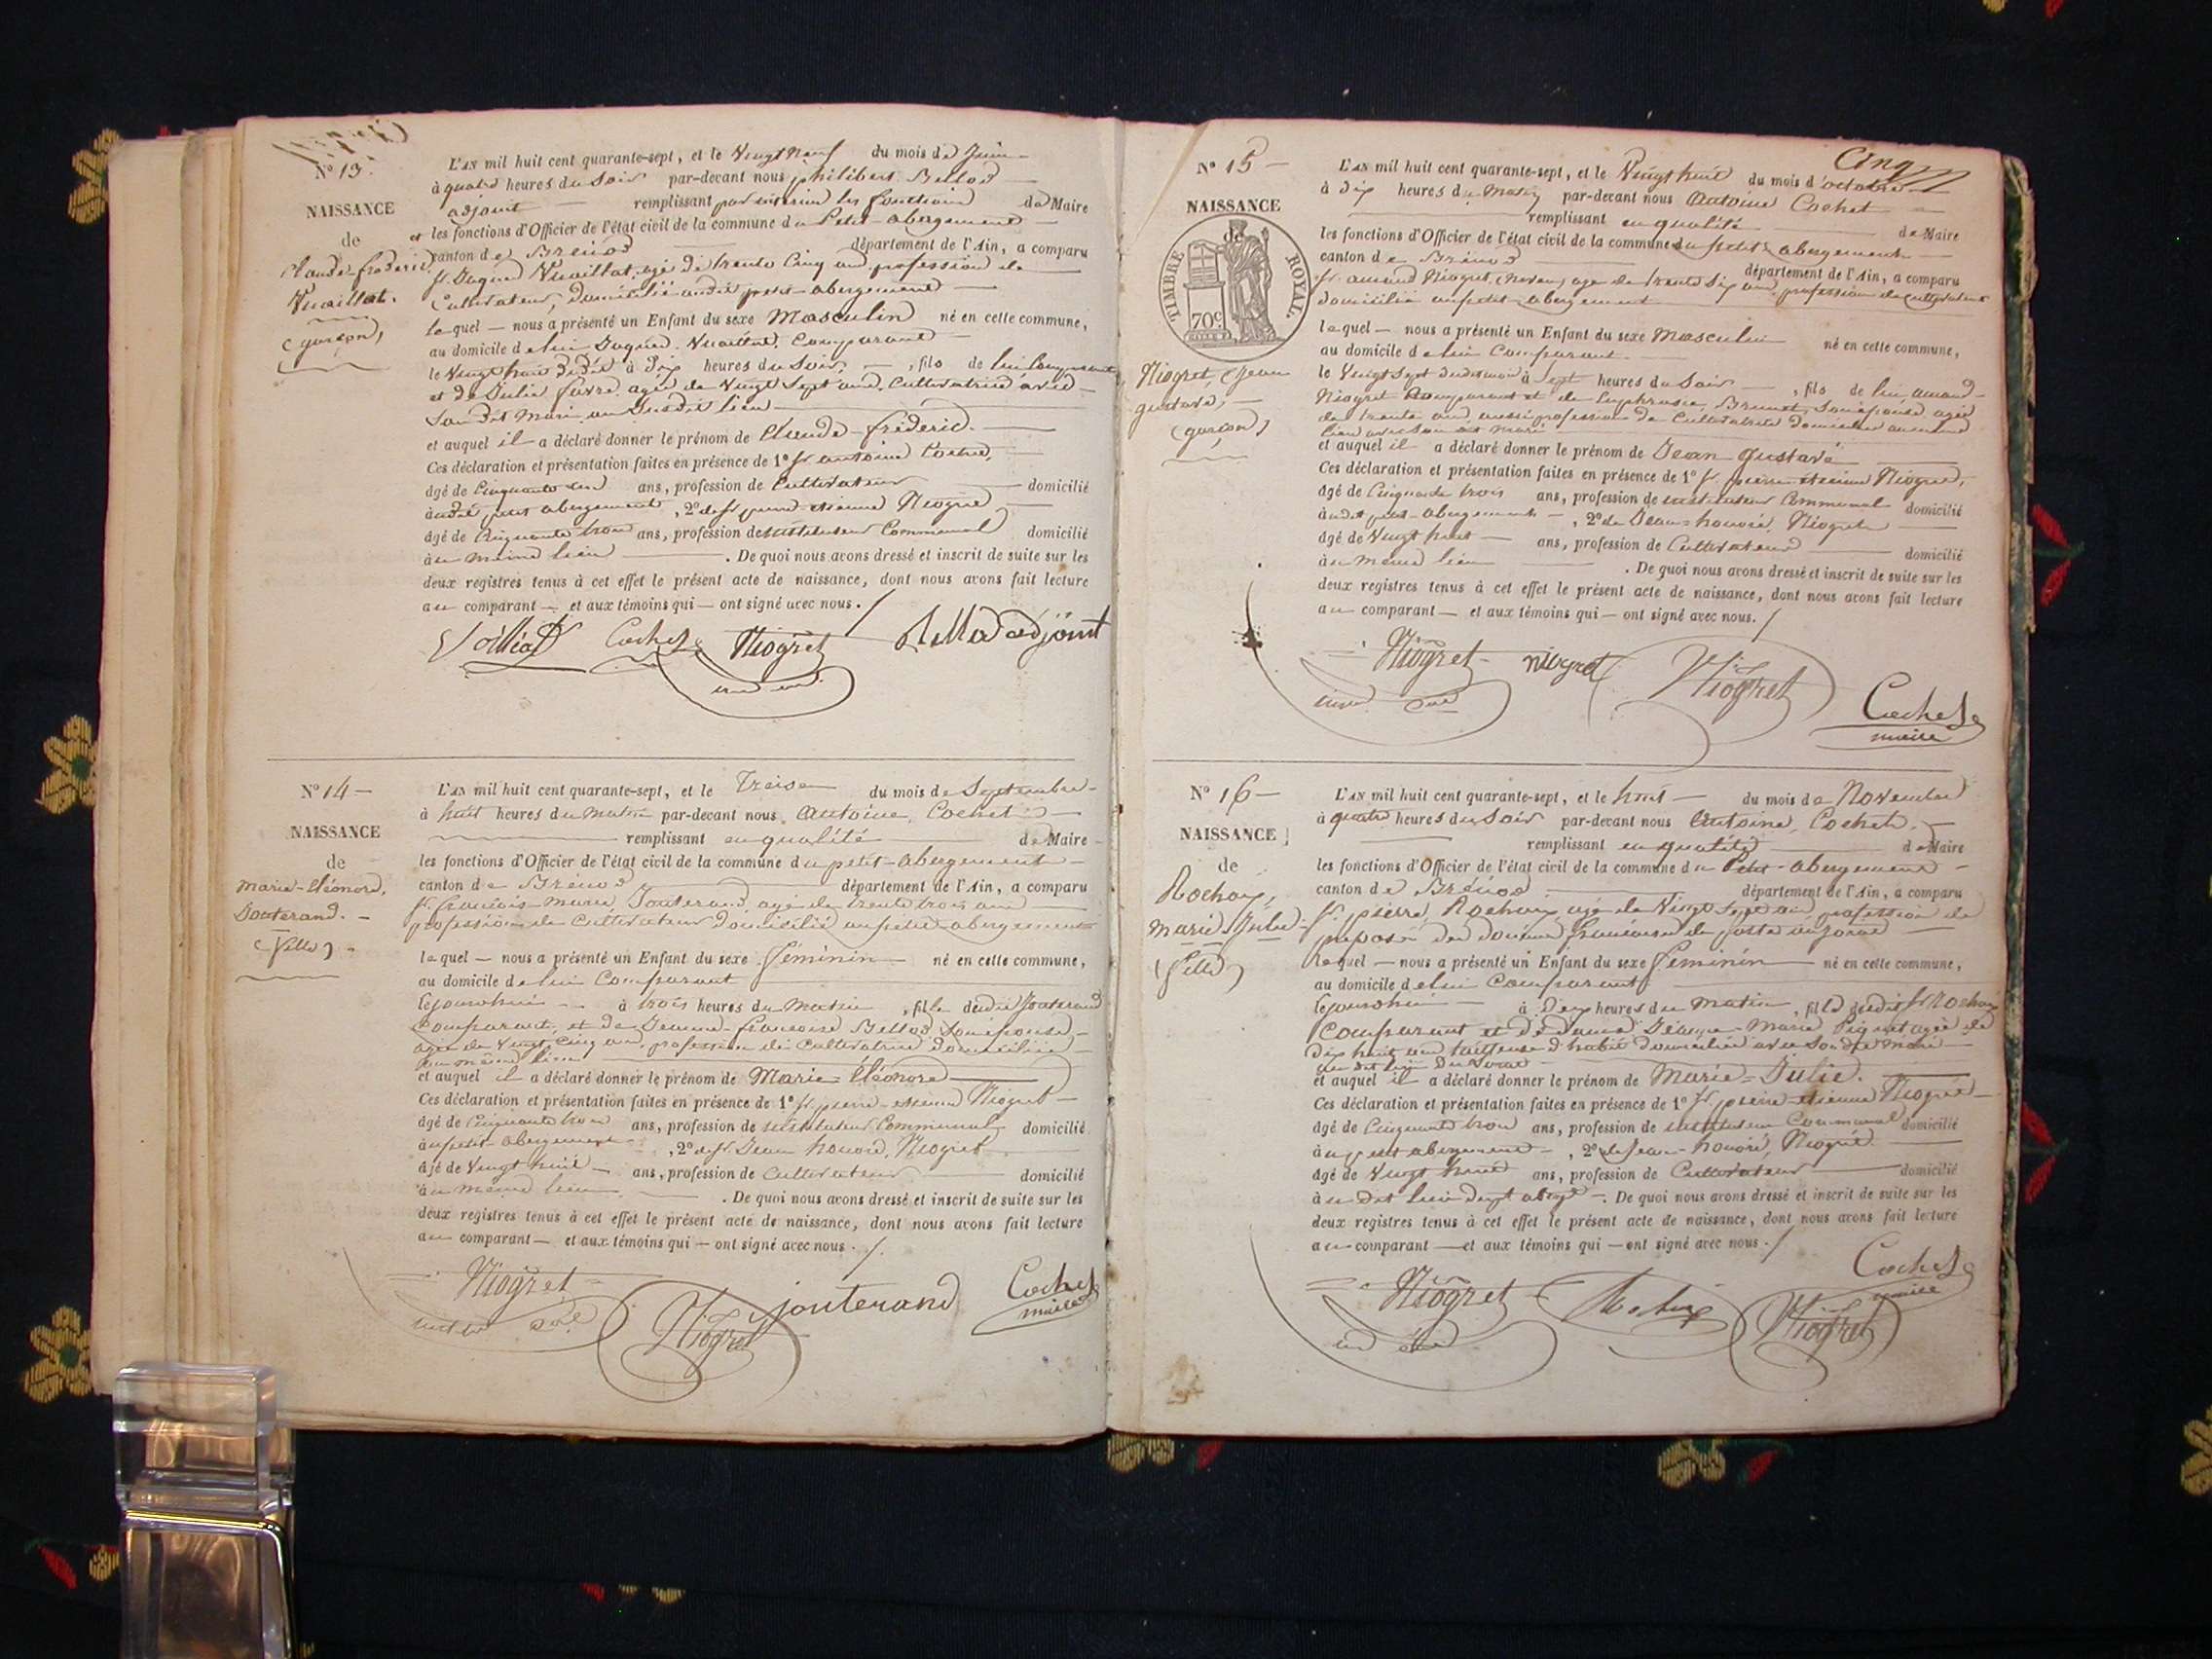 N° 13.
NAISSANCE
de
Claude frederic
Vuaillat.
(garçon)
L'AN mil huit cent quarante-sept, et le Vingt neuf du mois de Juin
à quatre heures du Soir par-devant nous philibert Bellod
adjoint remplissant par interim les fonctions de Maire
et les fonctions d'Officier de l'état civil de la commune du Petit-abergement
canton de Brénod département de l'Ain, a comparu
Sr. Vuaillat, agé de trente Cinq ans profession de
Cultivateur, domicilié audit petit-abergement
lequel — nous a présenté un Enfant du sexe Masculin né en cette commune,
au domicile de lui Comparant
le Vingt huit dudit à Dix heures du Soir, fils de lui Comparant
et de Julie favre agée de Vingt Sept ans, Cultivatrice avec
Son dit Mari au Susdit lieu
et auquel il a déclaré donner le prénom de Claude-frédéric.
Ces déclaration et présentation faites en présence de 1° Sr antoine Cochet,
âgé de Cinquante ans, profession de Cultivateur domicilié
audit petit abergement, 2° de Sr pierre-etienne Niogret
âgé de Cinquante trois ans, profession de instituteur Communal domicilié
à au même lieu . De quoi nous avons dressé et inscrit de suite sur les
deux registres tenus à cet effet le présent acte de naissance, dont nous avons fait lecture
au comparant — et aux témoins qui — ont signé avec nous.
Cochet Niogret Bellod adjoint
N° 14
NAISSANCE
de
Marie-Eléonore,
Jouterand.
(fille)
L'AN mil huit cent quarante-sept, et le Treise du mois de Septembre
à huit heures du Matin par-devant nous antoine Cochet
remplissant en qualité de Maire
les fonctions d'Officier de l'état civil de la commune du petit-abergement
canton de Brénod département de l'Ain, a comparu
Sr. francois-Marie Jouterand, agé de trente trois ans
profession de Cultivateur domicilié au petit-abergement
lequel — nous a présenté un Enfant du sexe féminin né en cette commune,
au domicile de lui Comparant
lejourdhui à trois heures du Matin, fille dudit Jouterand
Comparant, et de Jeanne-francoise Bellod Son épouse
agée de Vingt Cinq ans, profession de Cultivatrice domiciliée
au même lieu
et auquel il a déclaré donner le prénom de Marie-Eléonore
Ces déclaration et présentation faites en présence de 1° Sr pierre-etienne Niogret
âgé de Cinquante trois ans, profession de instituteur Communal domicilié
à au petit-abergement, 2° de Sr Jean honoré, Niogret
âgé de Vingt huit ans, profession de Cultivateur domicilié
à au même lieu . De quoi nous avons dressé et inscrit de suite sur les
deux registres tenus à cet effet le présent acte de naissance, dont nous avons fait lecture
au comparant — et aux témoins qui — ont signé avec nous.
Niogret Niogret jouterand Cochet
maire
Cinq
N° 15
NAISSANCE
de
TIMBRE ROYAL.
70c.
Niogret, Jean
gustave,
(garçon)
L'AN mil huit cent quarante-sept, et le Vingt huit du mois d'octobre
à dix heures du Matin par-devant nous Antoine Cochet
remplissant en qualité de Maire
les fonctions d'Officier de l'état civil de la commune du petit abergement
canton de Brénod département de l'Ain, a comparu
Sr. amand Niogret, agé de trente Six ans, profession de Cultivateur
domicilié au petit-abergement
lequel — nous a présenté un Enfant du sexe Masculin né en cette commune,
au domicile de lui Comparant
le Vingt Sept dudit mois à Sept heures du Soir, fils de lui amand
Niogret Comparant et de Euphrasie, Brunet, Son épouse agée
de trente ans aussi profession de Cultivatrice domiciliée au même
lieu avec son dit mari
et auquel il a déclaré donner le prénom de Jean gustave
Ces déclaration et présentation faites en présence de 1° Sr pierre-etienne Niogret,
âgé de Cinquante trois ans, profession de instituteur Communal domicilié
audit petit-abergement, 2° de Jean-honoré, Niogret
âgé de Vingt huit ans, profession de Cultivateur domicilié
à au même lieu . De quoi nous avons dressé et inscrit de suite sur les
deux registres tenus à cet effet le présent acte de naissance, dont nous avons fait lecture
au comparant — et aux témoins qui — ont signé avec nous.
Niogret niogret Niogret Cochet
maire
N° 16
NAISSANCE
de
Rochaix,
Marie-Julie
(fille)
L'AN mil huit cent quarante-sept, et le huit du mois de Novembre
à quatre heures du Soir par-devant nous Antoine, Cochet
remplissant en qualité de Maire
les fonctions d'Officier de l'état civil de la commune du Petit-abergement
canton de Brénod département de l'Ain, a comparu
Sr. pierre, Rochaix, agé de Vingt Sept ans, profession de
préposé des douanes francaises de poste
lequel — nous a présenté un Enfant du sexe féminin né en cette commune,
au domicile de lui Comparant
lejourdhui à Deux heures du Matin, fille dudit Sr Rochaix
Comparant et de dame Jeanne-Marie Piquet agée de
Dix huit ans tailleuse d'habit domiciliée avec Son dit Mari
et auquel il a déclaré donner le prénom de Marie-Julie.
Ces déclaration et présentation faites en présence de 1° Sr pierre-etienne Niogret
âgé de Cinquante trois ans, profession de instituteur Communal domicilié
à au petit abergement, 2° de Jean-honoré, Niogret
âgé de Vingt huit ans, profession de Cultivateur domicilié
à au dit lieu . De quoi nous avons dressé et inscrit de suite sur les
deux registres tenus à cet effet le présent acte de naissance, dont nous avons fait lecture
au comparant — et aux témoins qui — ont signé avec nous.
Niogret Rochaix Niogret Cochet
maire